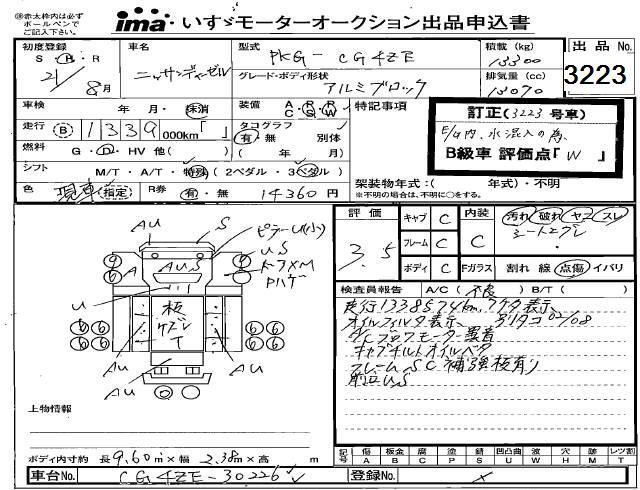 ※赤太枠内は必ずボールペンでご記入下さい。
ima いすゞモーターオークション出品申込書
初度登録 S・H・R 21/8月
車名 ニッサンディーゼル
型式 PKG-CG4ZE
積載(kg) 13300
出品No. 3223
グレード・ボディ形状 アルミブロック
排気量(cc) 13070
車検 年 月・抹消
装備 A C ・ P S ・ P W
特記事項
訂正(3223号車)
E/G内、水混入の為、
B級車 評価点「W」
走行 B 1339000km「 」
タコグラフ 有・無 別体 ( 年 月)
燃料 G・D・HV 他( )
シフト M/T・A/T・特殊(2ペダル・3ペダル)
色 現車(指定)
R券 有・無 14360円
架装物年式:( 年式)・不明
※不明の場合は、不明に○をする。
AU S ピラーU(小)
US
A AUS
U 板
AU AU
AU
評価 3.5
キャブ C 内装 汚れ 破れ ヤニ スレ
フレーム C C
ボディ C Fガラス 割れ 線 点傷 イバリ
検査員報告 A/C(不良)B/T( )
走行1338574km、7ケタ表示
オイルフィルタ表示、デジタコ02/08
A/Cブロワモーター異音
キャブチルトオイルベタ
フレームSC補強板有り
前廻US
上物情報
ボディ内寸約 長9.60m×幅2.38m×高 m
記号 傷 A 板金 B 腐 C 凹 P 塗 S 錆 U 凹凸曲 W 波 H 穴 M 跡 T レツ割
車台No. CG4ZE-30226
登録No.